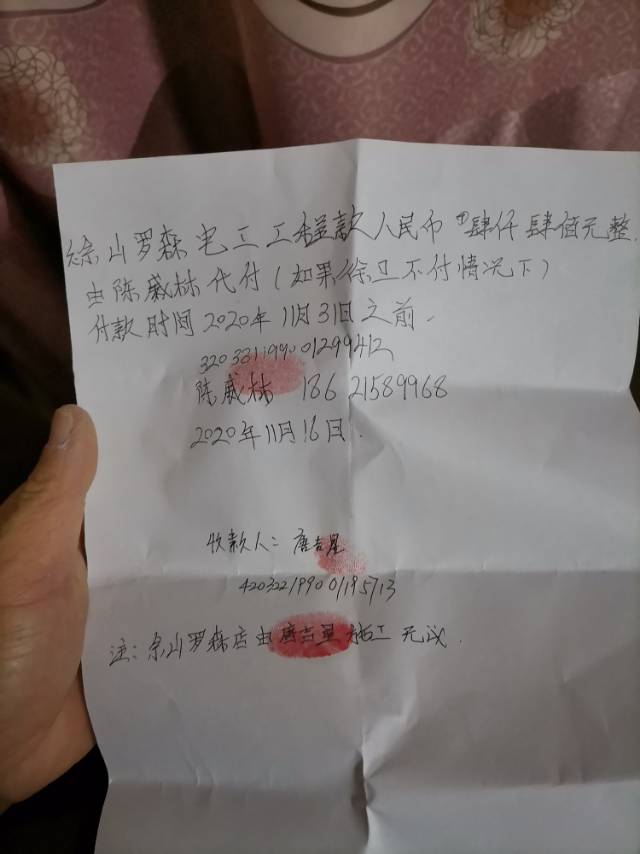 佘山罗森电工工程款人民币肆仟肆佰元整.
由陈威林代付(如果徐卫不付情况下)
付款时间2020年11月31日之前.
陈威林 18621589968
2020年11月16日.
收款人: 唐吉星
注:佘山罗森店由唐吉星施工无议.